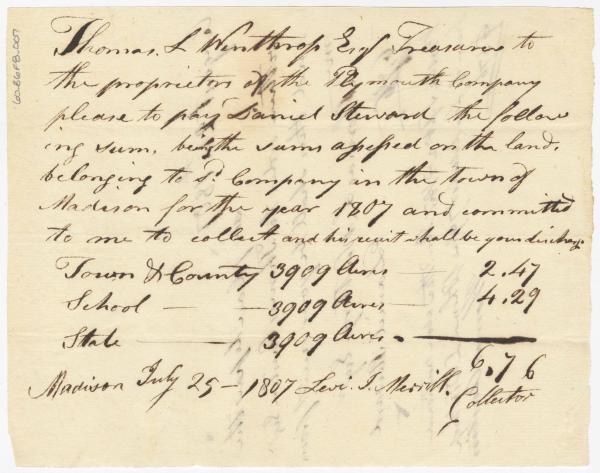 Thomas L Winthrop Esqr Treasurer to
the proprietors of the Plymouth Company
please to pay Daniel Steward the follow
ing sum, being the sums assessed on the land,
belonging to sd. Company in the town of
Madison for the year 1807 and committed
to me to collect and his recuit shall be your discharge
Town & County 3909 Acres — 2.47
School — — 3909 Acres — 4.29
State — 3909 Acres -
6.76
Madison July 25 — 1807 Levi. J. Merrill.
Collector